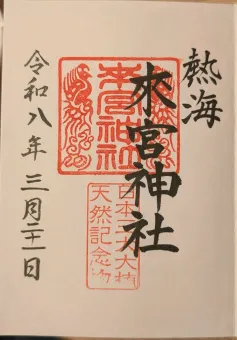 熱海
來宮神社
令和八年三月二十一日
來宮神社
日本二大大樟
天然記念物